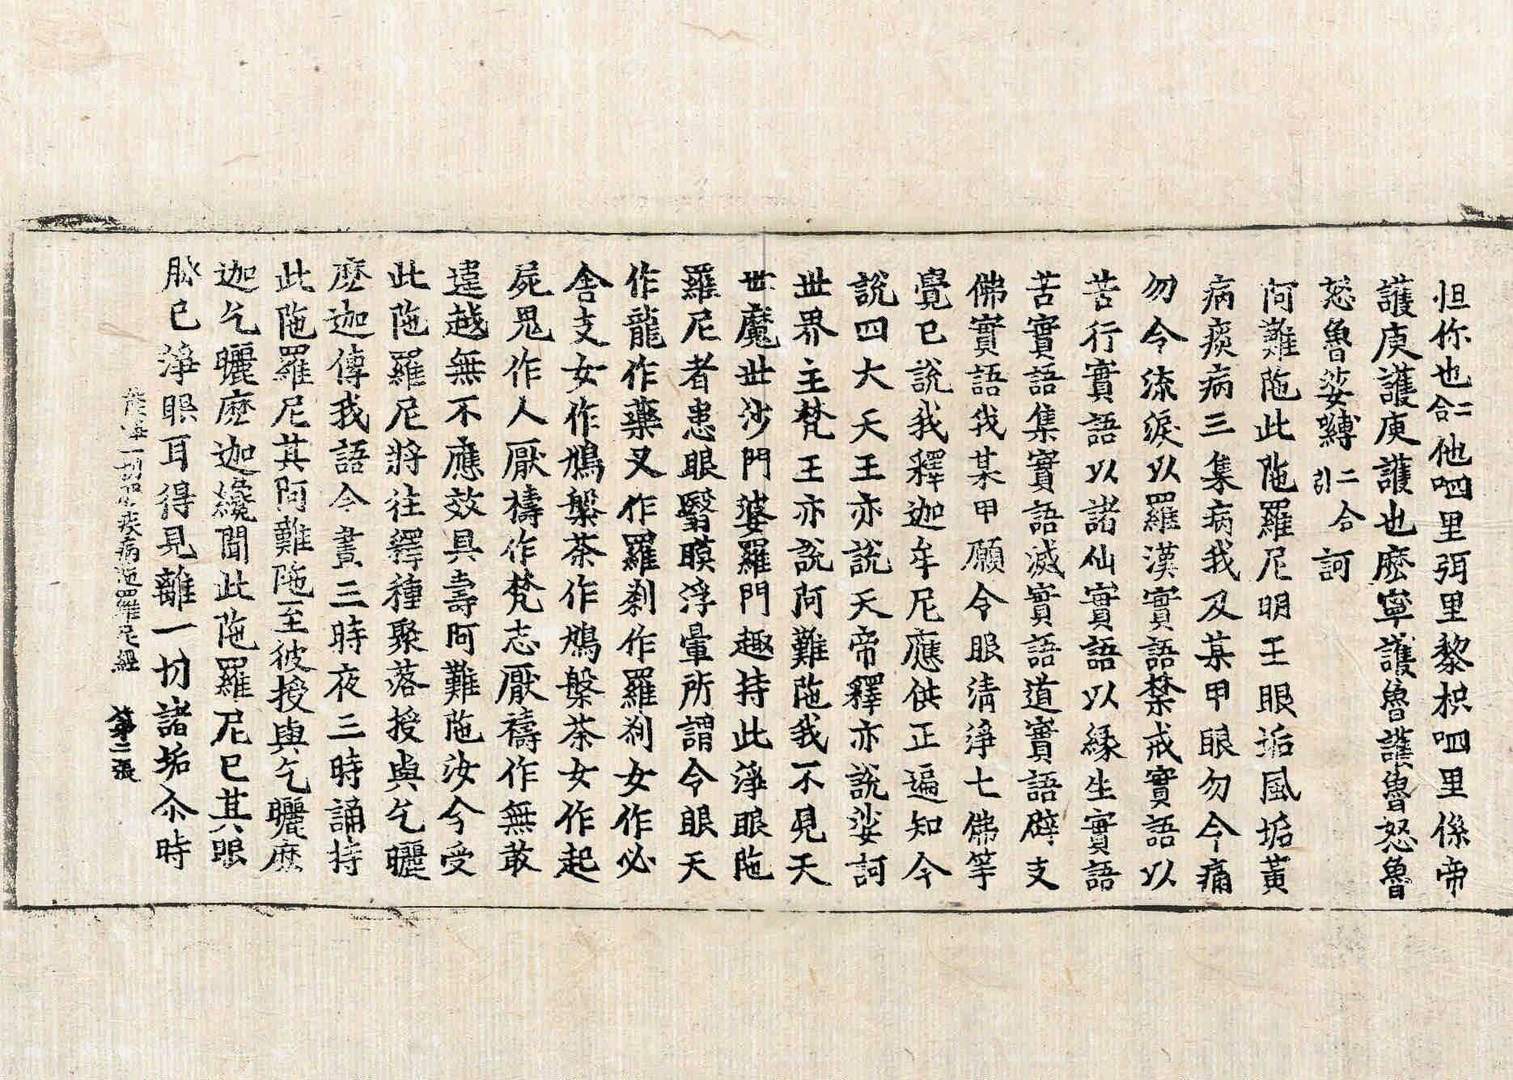 怛你也二合他呬里弭里黎枳呬里係帝
護庾護庾護也麽寧護魯護魯怒魯
怒魯娑嚩二合引訶
阿難陁此陁羅尼明王眼垢風垢黃
病痰病三集病我及某甲眼勿令痛
勿令流淚以羅漢實語禁戒實語以
苦行實語以諸仙實語以緣生實語
苦實語集實語滅實語道實語辟支
佛實語我某甲願令眼清淨七佛等
覺已說我釋迦牟尼應供正遍知今
說四大天王亦說天帝釋亦說娑訶
世界主梵王亦說阿難陁我不見天
世魔世沙門婆羅門趣持此淨眼陁
羅尼者患眼翳瞙浮暈所謂令眼天
作龍作藥叉作羅剎作羅剎女作必
舍支女作鳩槃茶作鳩槃茶女作起
屍鬼作人厭禱作梵志厭禱作無敢
違越無不應效具壽阿難陁汝今受
此陁羅尼將往釋種聚落授與乞曬
麽迦傳我語令晝三時夜三時誦持
此陁羅尼其阿難陁至彼授與乞曬麽
迦乞曬麽迦纔聞此陁羅尼已其眼
脉已淨眼耳得見離一切諸垢尒時
能淨一切眼疾病陁羅尼經 第二張